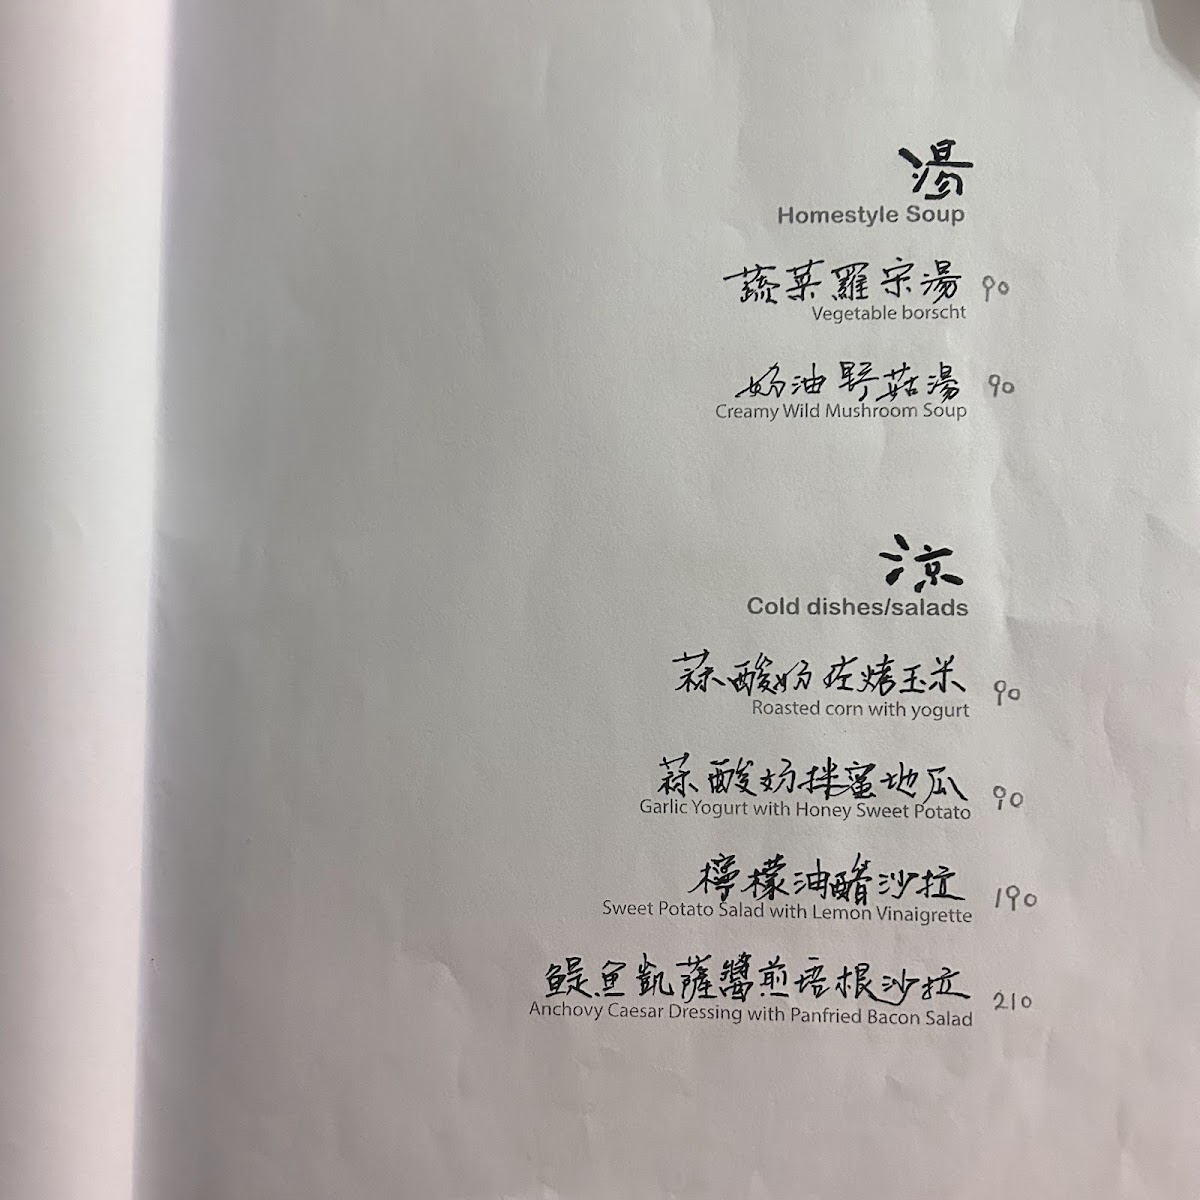 湯
Homestyle Soup
蔬菜羅宋湯 90
Vegetable borscht
奶油野菇湯 90
Creamy Wild Mushroom Soup
涼
Cold dishes/salads
蒜酸奶 烤玉米 90
Roasted corn with yogurt
蒜酸奶拌蜜地瓜 90
Garlic Yogurt with Honey Sweet Potato
檸檬油醋沙拉 190
Sweet Potato Salad with Lemon Vinaigrette
鯷魚凱薩醬煎培根沙拉 210
Anchovy Caesar Dressing with Panfried Bacon Salad